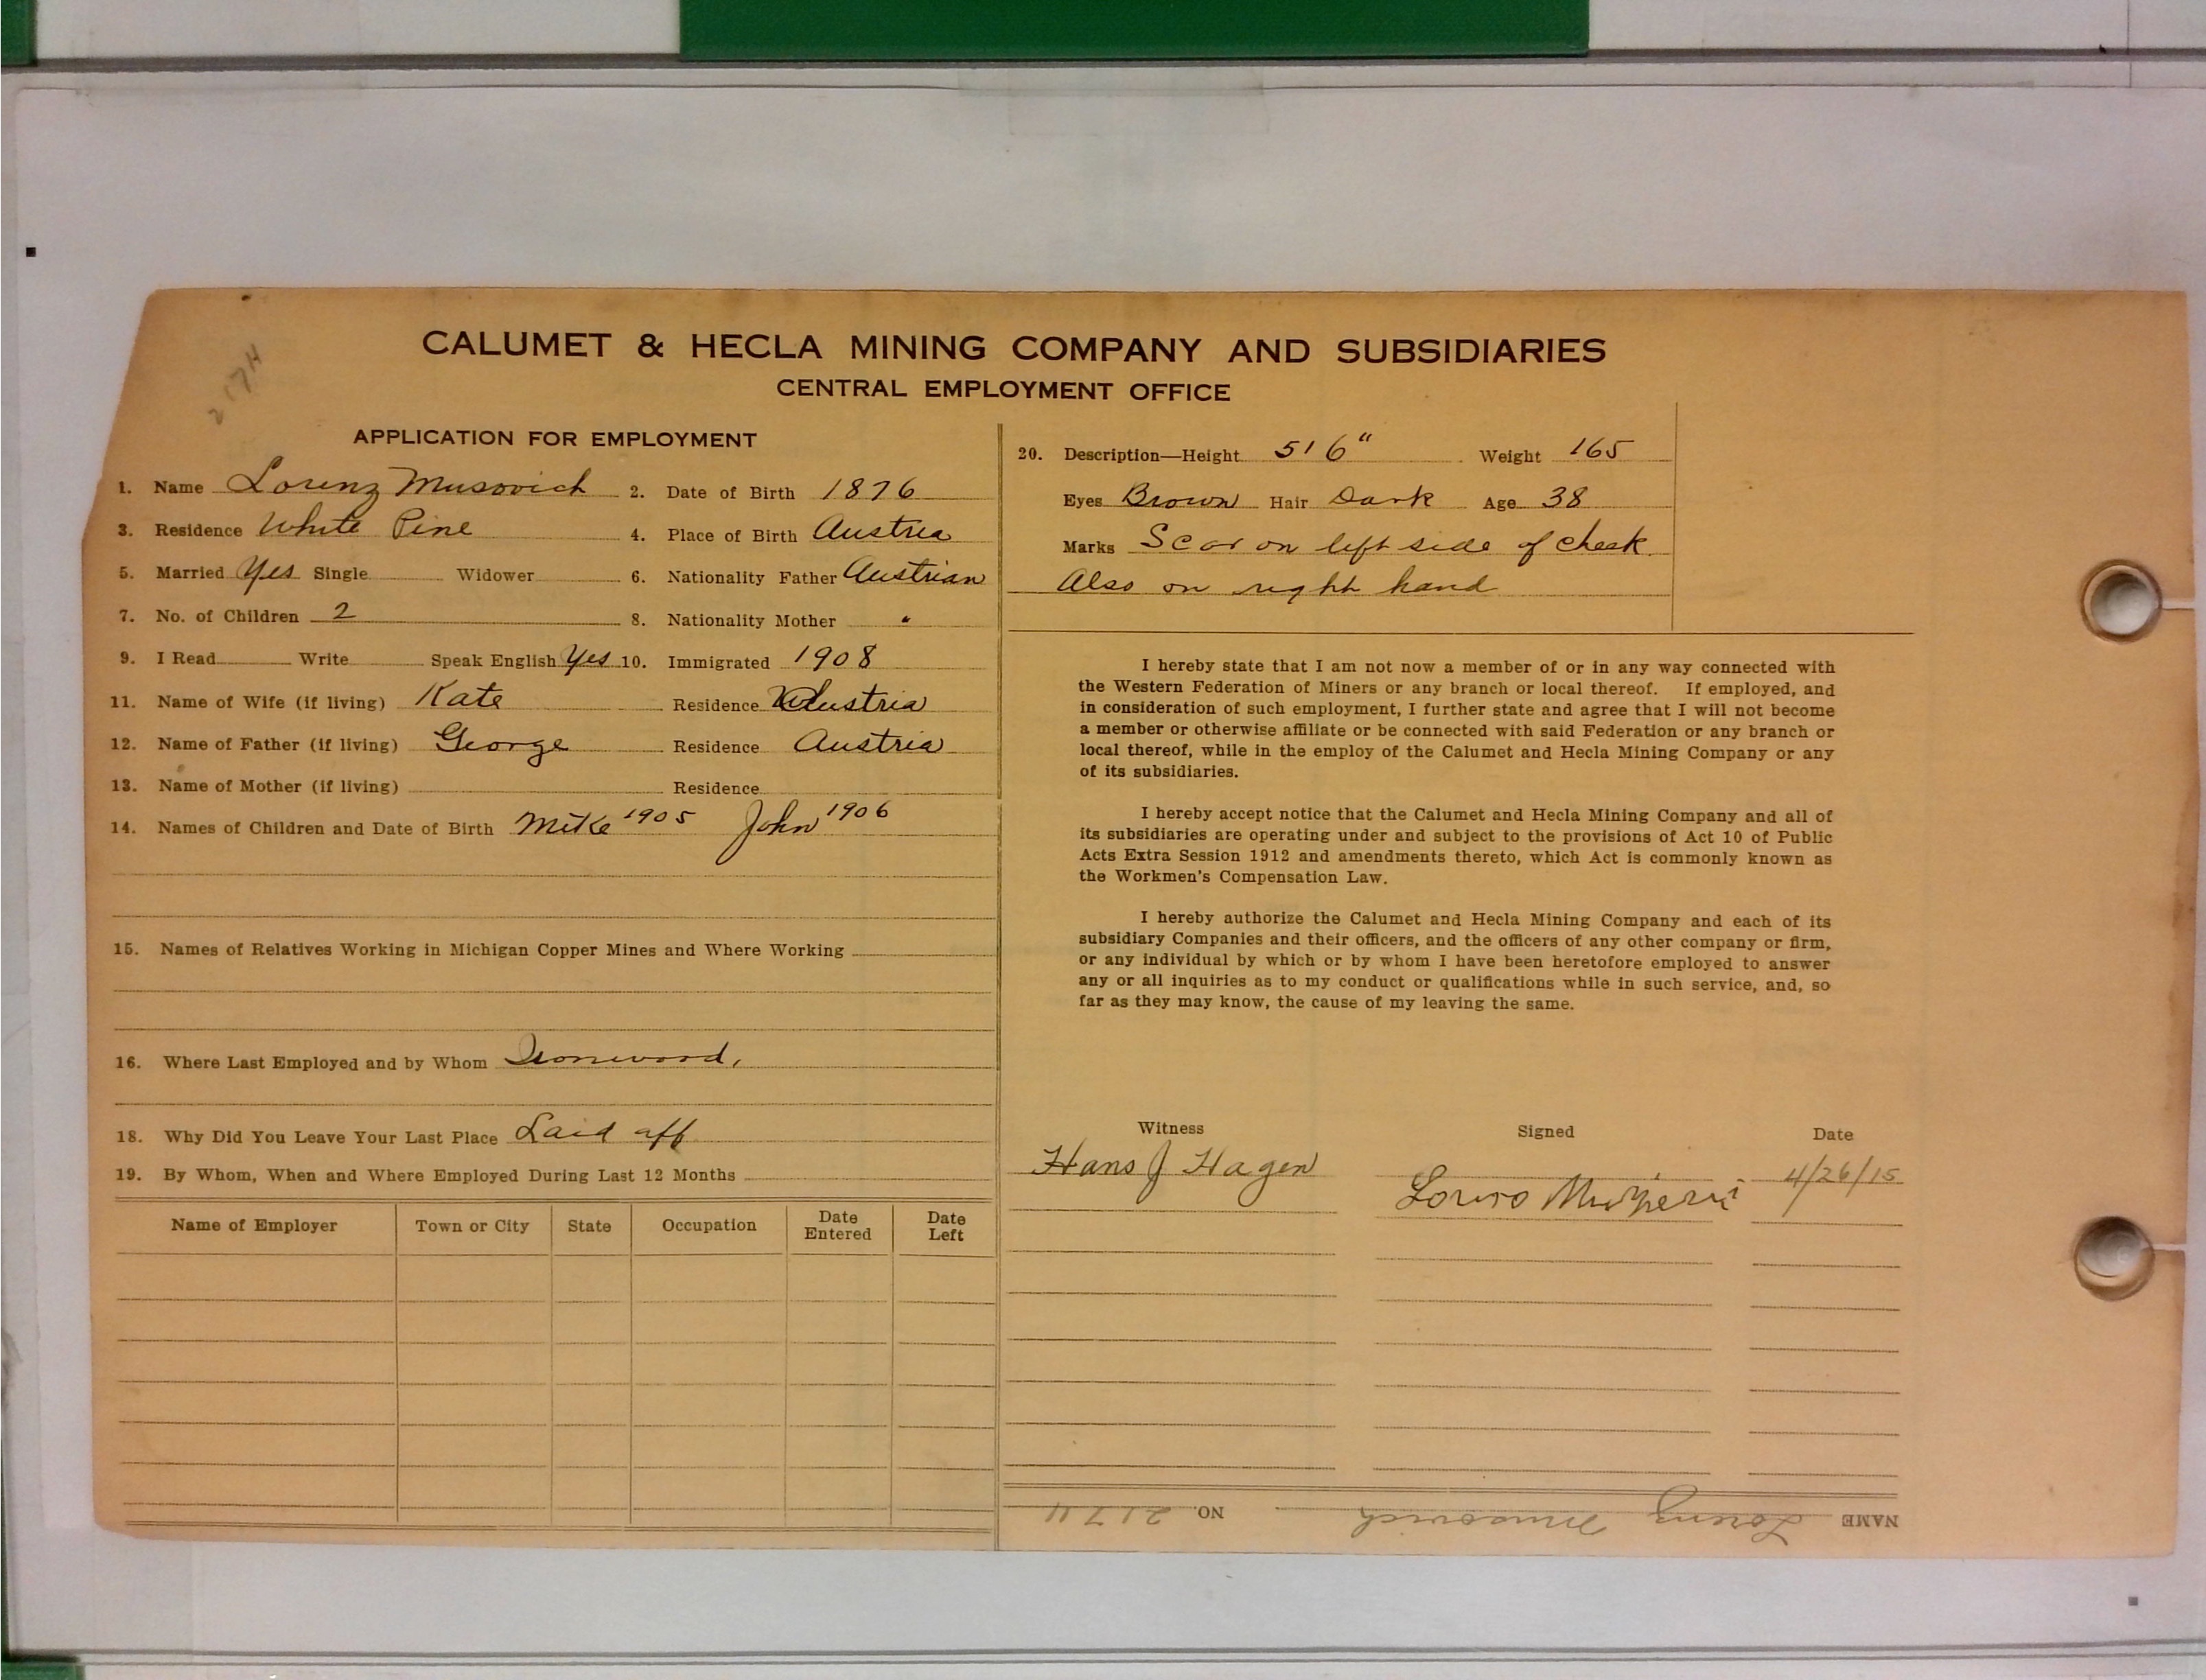 CALUMET & HECLA MINING COMPANY AND SUBSIDIARIES
CENTRAL EMPLOYMENT OFFICE
APPLICATION FOR EMPLOYMENT
1. Name Lorenz Musovich 2. Date of Birth 1876
3. Residence White Pine 4. Place of Birth Austria
5. Married Yes Single Widower 6. Nationality Father Austrian
7. No. of Children 2 8. Nationality Mother "
9. I Read Write Speak English Yes 10. Immigrated 1908
11. Name of Wife (if living) Kate Residence Austria
12. Name of Father (if living) George Residence Austria
13. Name of Mother (if living) Residence
14. Names of Children and Date of Birth Mike 1905 John 1906
15. Names of Relatives Working in Michigan Copper Mines and Where Working
16. Where Last Employed and by Whom Ironwood,
18. Why Did You Leave Your Last Place Laid off
19. By Whom, When and Where Employed During Last 12 Months
Name of Employer Town or City State Occupation Date Entered Date Left
20. Description—Height 5' 6" Weight 165
Eyes Brown Hair Dark Age 38
Marks Scar on left side of cheek
Also on right hand
I hereby state that I am not now a member of or in any way connected with
the Western Federation of Miners or any branch or local thereof. If employed, and
in consideration of such employment, I further state and agree that I will not become
a member or otherwise affiliate or be connected with said Federation or any branch or
local thereof, while in the employ of the Calumet and Hecla Mining Company or any
of its subsidiaries.
I hereby accept notice that the Calumet and Hecla Mining Company and all of
its subsidiaries are operating under and subject to the provisions of Act 10 of Public
Acts Extra Session 1912 and amendments thereto, which Act is commonly known as
the Workmen's Compensation Law.
I hereby authorize the Calumet and Hecla Mining Company and each of its
subsidiary Companies and their officers, and the officers of any other company or firm,
or any individual by which or by whom I have been heretofore employed to answer
any or all inquiries as to my conduct or qualifications while in such service, and, so
far as they may know, the cause of my leaving the same.
Witness Signed Date
Hans J Hagen 4/26/15
NAME Lorenz Musovich NO.